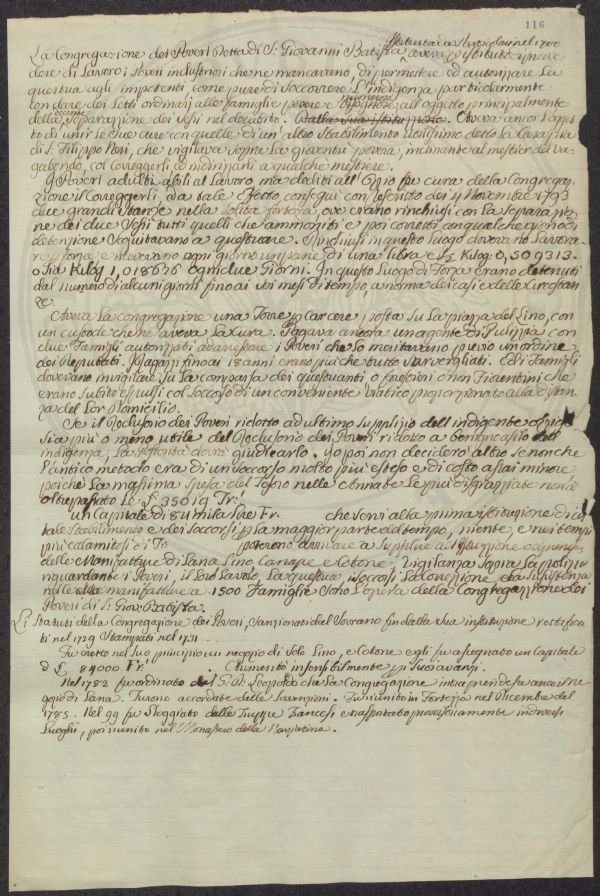 116
La Congregazione dei Poveri detta di S. Giovanni Batista aveva per istituto di prove
dere di Lavoro i Poveri industriosi che ne mancavano, di permettere ed autorizzare La
questua agli impotenti, come pure di Soccorrere L'indigenza particolarmente
con dare dei Letti ordinarij alle famiglie povere e all'oggetto principalmente
della Separazione dei Sessi nel decubito. Dalla Sua istituzione. Aveva ancor L'ogget
to di unir le Sue cure con quelle di un' altro Stabilimento utilissimo detto La Casa Pia
di S. Filippo Neri, che vigilava Sopra La gioventù povera, inclinante al mestier del va
gabondo, col correggerli ed indirizzarli a qualche mestiere.
I Poveri adulti abili al Lavoro, ma dediti all'Ozio fu cura della Congrega
zione il Coreggerli, da tale effetto conseguì con rescritto dei 4 Novembre 1793
due grandi Stanze nella Solita fortezza, ove erano rinchiusi con La Separazio
ne dei due Sessi tutti quelli che ammoniti e poi corretti con qualche giorno di
detenzione Seguitavano a questuare. Rinchiusi in questo Luogo dovevano Lavora
re per forza e ricevevano ogni giorno un pane di una libra e 1/2 Kilog. 0,509313.
o Sia Kilog 1,018626 ogni due Giorni. In questo Luogo di Forza erano detenuti
dal numero di alcuni giorni fino ai Sei mesi di tempo, a norma dei casi e delle Circostan
ze
Aveva La Congregazione una Torre per Carcere posta Su La piazza del Lino, con
un custode che ne aveva La Cura. Pagava ancora un agente di Pulizzia con
due Famigli autorizzati ad arrestare i Poveri che lo meritavano previo un ordine
dei Deputati. Ragazzi fino ai 18 anni erano più che tutto Sorvegliati. Ed i Famigli
dovevano invigilare Su La comparsa dei questuanti o forestieri o non Fiorentini che
erano Subito espulsi col Soccorso di un conveniente viatico proporzionato alla distan
za del Lor Domicilio.
Se il Reclusorio dei Poveri ridotto ad ultimo Supplizio dell'indigente ozioso
Sia più o meno utile del Reclusorio dei Poveri ridotto a
indigenza, La dovrà giudicarlo. Io poi non deciderò altro Se non che
L'antico metodo era di un Soccorso molto più esteso e di costo assai minore
poichè La massima Spesa del Tesoro nelle Annate Le più disgraziate non à
oltrepassato Le £ 35019 Fr.
un Capitale di 84 mila lire Fr. che Servì alla prima istituzione di co
tale Stabilimento e dei Soccorsi per La maggior parte del tempo, niente, e nei tempi
più calamitosi i Fr. poterono arrivare a Supplire all'
delle Manifatture di Lana Lino Canape e Cotone; Vigilanza Sopra La polizia
riguardante i Poveri, il Loro Lavoro, La questua, i Soccorsi, La correzione e La Sussistenza
nelle manifatture a 1500 Famiglie Sono L'opera della Congregazione dei
Poveri di S. Giov: Batista.
Li Statuti della Congregazione dei Poveri, Sanzionati dal Sovrano fin dalla Sua instituzione rettifica
ti nel 1729 Stampati nel 1731.
Fu eretto nel Suo principio un negozio di Solo Lino, e Cotone e gli fu assegnato un Capitale
di £ 84000 Fr. Aumentò insensibilmente per Suoi avanzi.
Nel 1782 fu ordinato dal G. D. Leopoldo che La Congregazione intraprendesse anco il Ne
gozio di Lana. Furono accordate delle Sovvenzioni. Fu riunito in Fortezza nel Dicembre del
1785. Nel 99 fu Sloggiato dalle Truppe Francesi e trasportato provvisoriamente in diversi
Luoghi, poi riunito nel Monastero della